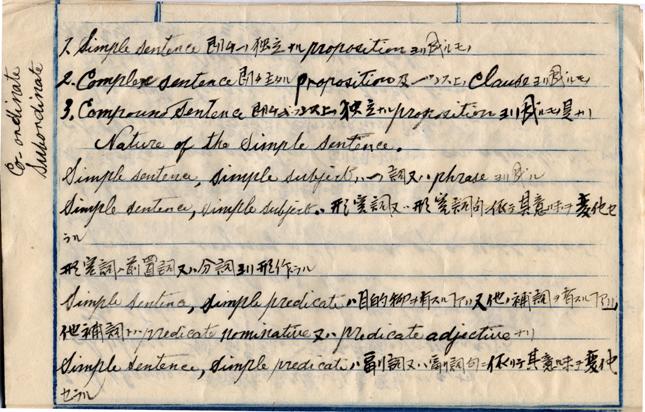 Co-ordinate
Subordinate
1. Simple sentence 即チ一独立ナル proposition ヨリ成ルモノ
2. Complex sentence 即チ主ナル proposition 及一ツ以上ノ Clause ヨリ成ルモノ
3. Compound Sentence 即チ二ツ以上ノ独立ナル proposition ヨリ成ルモノ是ナリ
Nature of the Simple Sentence.
Simple sentence, simple subject ハ一詞又ハ phrase ヨリ成ル
Simple sentence, simple subject ハ形容詞又ハ形容詞句ニ依テ其意味ヲ変化セ
ラル
形容詞ハ前置詞又ハ分詞ヨリ形作ラル
Simple sentence, simple predicate ハ目的物ヲ有スルアリ又他ノ補詞ヲ有スルアリ
他補詞トハ predicate nominative 又ハ predicate adjective ナリ
Simple sentence, simple predicate ハ副詞又ハ副詞句ニ依リテ其意味ヲ変化
セラル